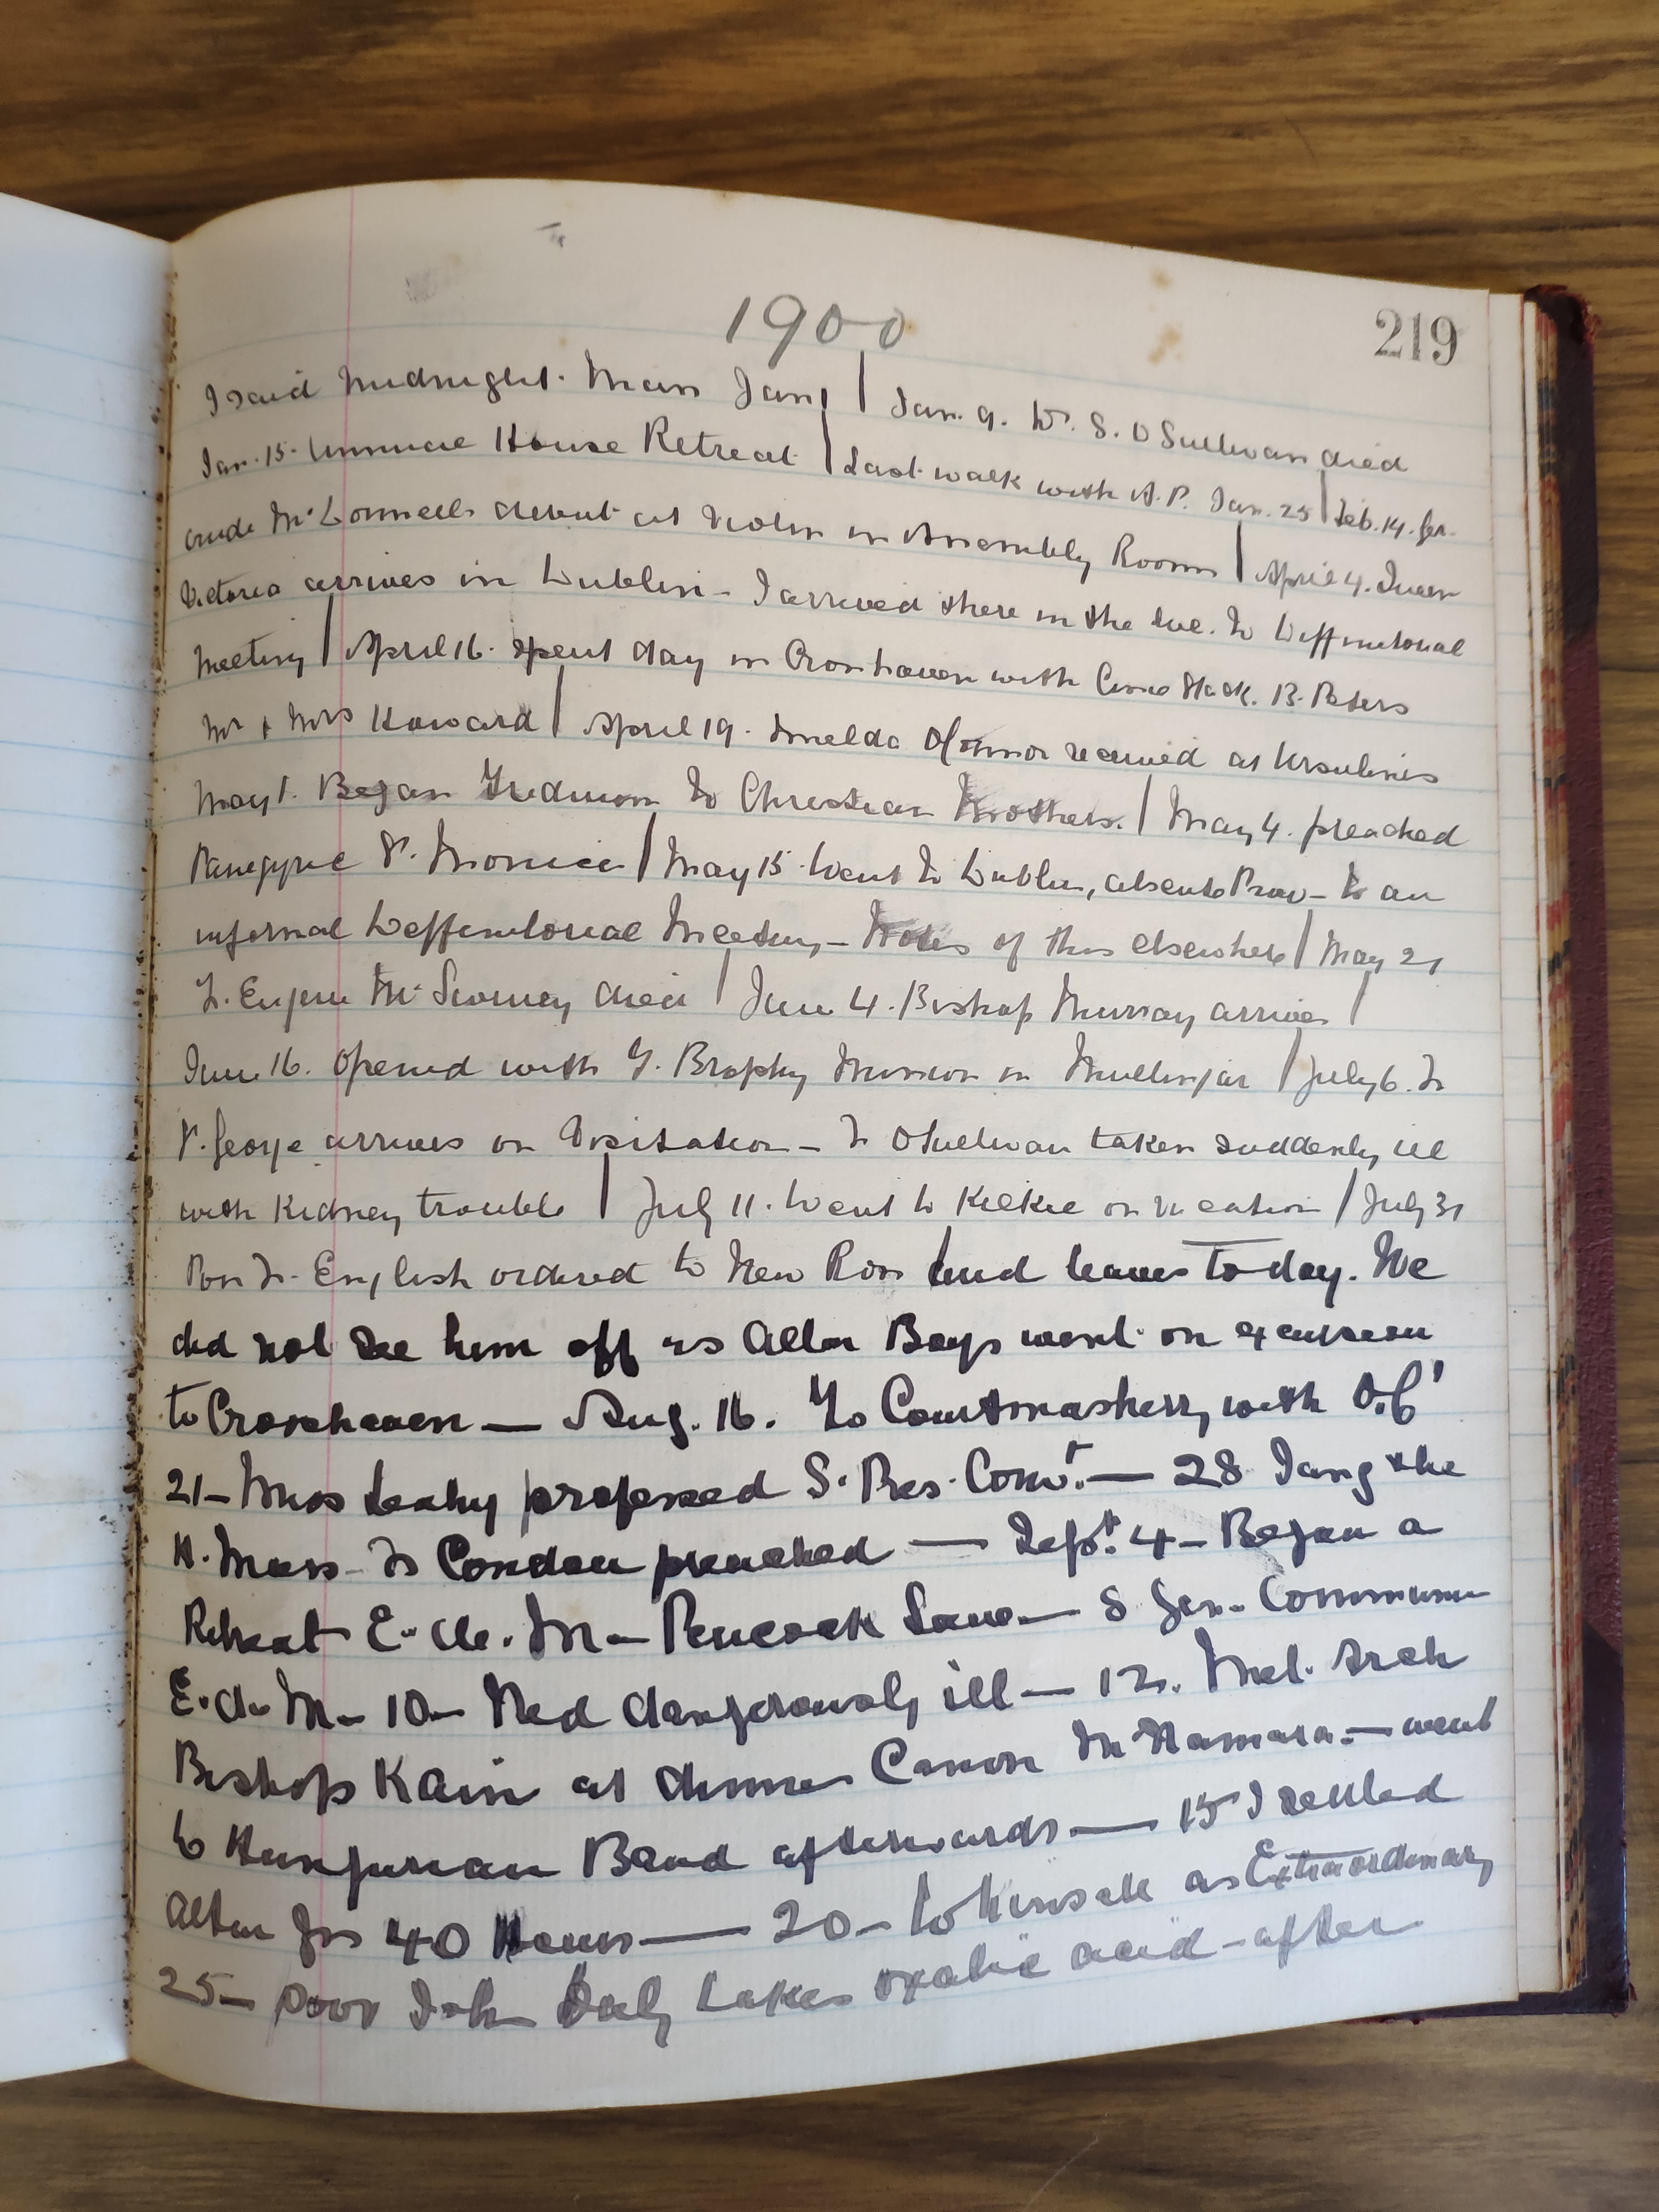 219
1900
I said Midnight Mass Jan 1 | Jan. 9. Dr. S. O Sullivan died
Jan. 15. Annual House Retreat | Last walk with A. P. Jan. 25 | Feb. 14. Ger-
trude McDonnell's debut at Violin in Assembly Rooms | April 4. Queen
Victoria arrives in Dublin - I arrived there in the Eve. to Deffinitorial
Meeting | April 16. spent day in Crosshaven with Stack. B. Peters
Mr & Mrs Howard | April 19. Imelda OConnor received at Ursulines
May 1. Began Triduum to Christian Brothers. | May 4. preached
Panegyric St. Monica | May 15 Went to Dublin, absente Prov - to an
informal Deffinitorial Meeting - Notes of this elsewhere | May 21
F. Eugene McSweeney died | June 4. Bishop Murray arrives |
June 16. Opened with F. Brophy Mission in Mullingar | July 6. Fr
P. George arrives on Visitation - Fr OSullivan taken suddenly ill
with Kidney trouble | July 11. Went to Kilkee on vacation | July 31
Poor Fr. English ordered to New Ross and leaves today. We
did not see him off as Altar Boys went on excursion
to Crosshaven — Aug. 16. To Courtmasherry with O.C'
21 - Miss Leahy professed S. Pres. Convt. — 28 I sang the
H. Mass - Fr Condon preached — Sept. 4 - Began a
Retreat E. de. M - Peacock Lane — 8 Gen. Communion
E. de M - 10 - Ned dangerously ill — 12. Met Arch
Bishop Kain at dinner Canon McNamara. — went
to Hungarian Band afterwards — 15 I settled
Altar for 40 Hours — 20 - to Kinsale as Extraordinary
25 - Poor John Daly takes oxalic acid - after